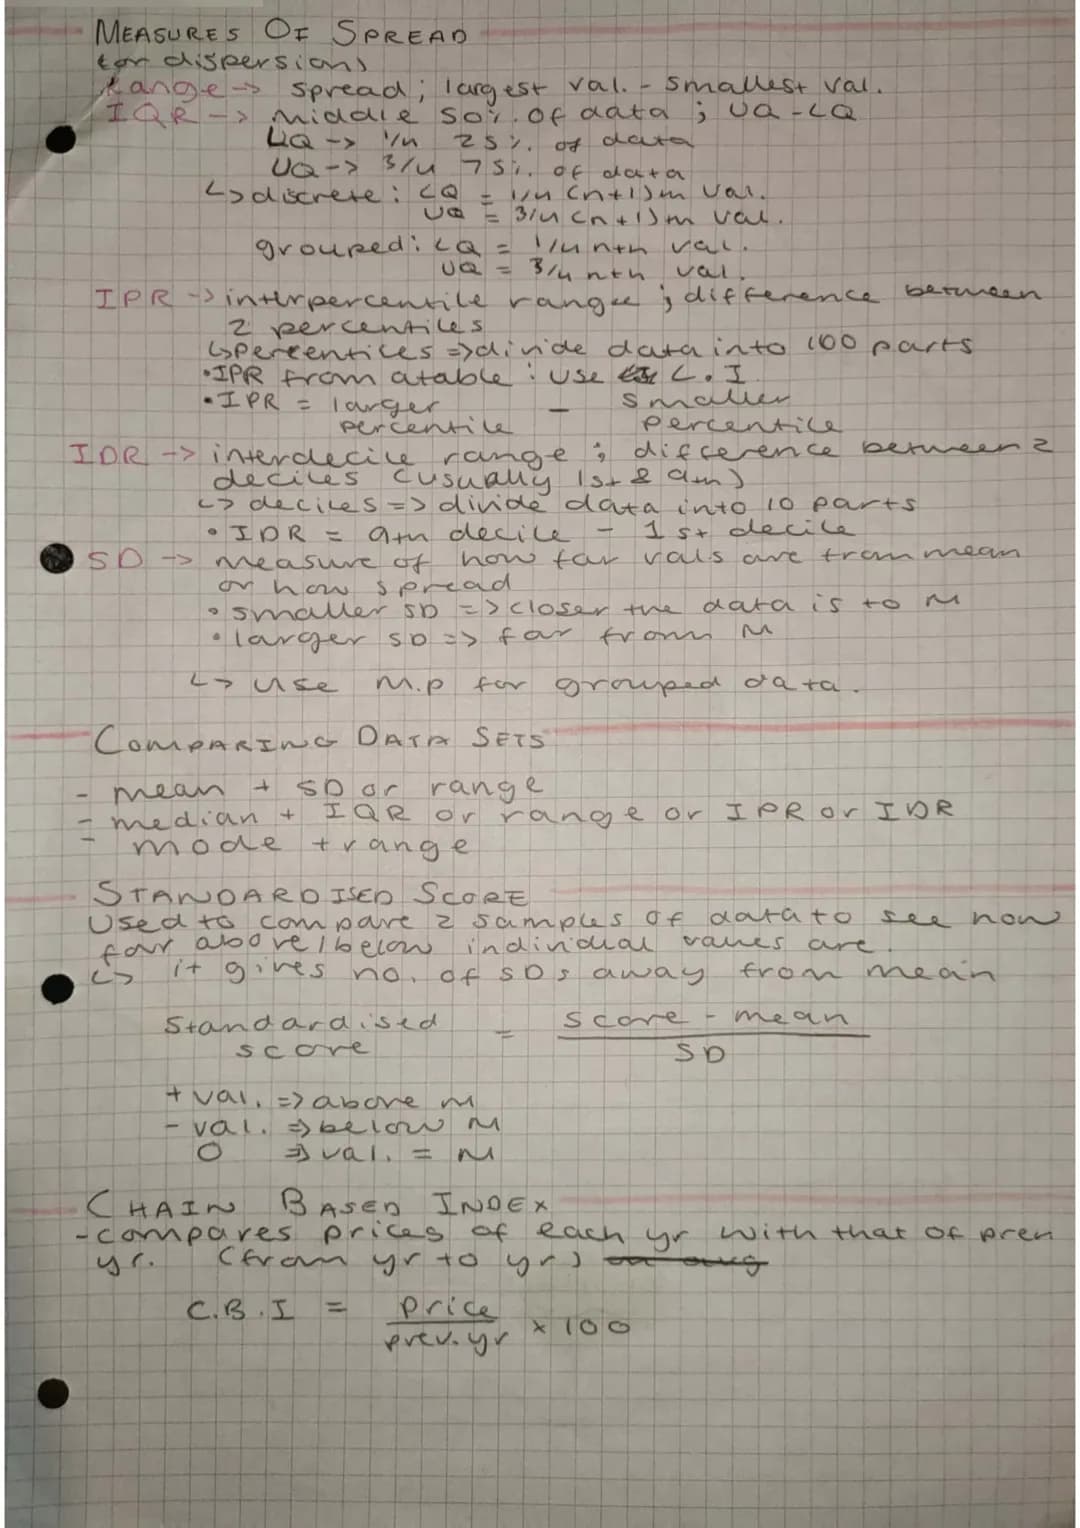 MEASURES OF SPREAD
(or dispersion)
Range -> spread; largest val. - smallest val.
IQR -> middle 50%. of data ; UQ-LQ
LQ -> 1/4 25%. of data
UQ -> 3/4 75%. of data
↳ discrete: LQ = 1/4 (n+1)th val.
UQ = 3/4 (n+1)th val.
grouped: LQ = 1/4 nth val.
UQ = 3/4 nth val.
IPR -> interpercentile range ; difference between
2 percentiles
↳ percentiles => divide data into 100 parts
• IPR from a table : use L.I
• IPR = larger - smaller
percentile percentile
IDR -> interdecile range ; difference between 2
deciles (usually 1st & 9th)
↳ deciles => divide data into 10 parts
• IDR = 9th decile - 1st decile
SD -> measure of how far vals are from mean
or how spread
• smaller SD => closer the data is to M
• larger SD => far from M
↳ use M.P for grouped data.
COMPARING DATA SETS
- mean + SD or range
- median + IQR or range or IPR or IDR
- mode + range
STANDARDISED SCORE
Used to compare 2 samples of data to see how
far above/below individual values are.
↳ it gives no. of SDs away from mean
Standardised = score - mean
score SD
+ val. => above M
- val. => below M
0 => val. = M
CHAIN BASED INDEX
- compares prices of each yr with that of prev
yr. (from yr to yr) on avg
C.B.I = price × 100
prev. yr